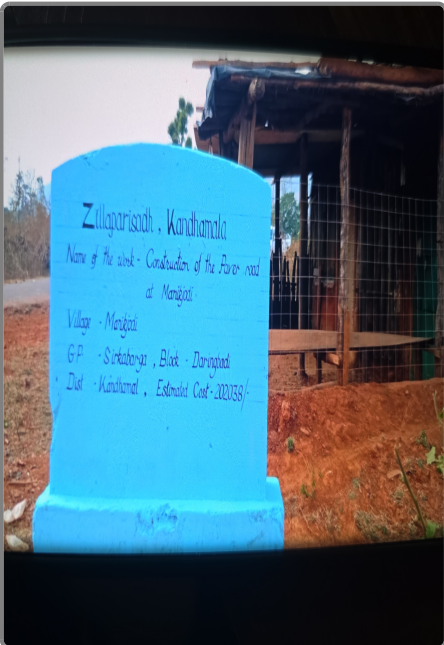 Zillaparisadh, Kandhamala
Name of the work - Construction of the Paver road
at Manikjodi
Village - Manikjodi
G.P - Sirkabarga, Block - Daringbadi
Dist - Kandhamal, Estimated Cost - 202038/-